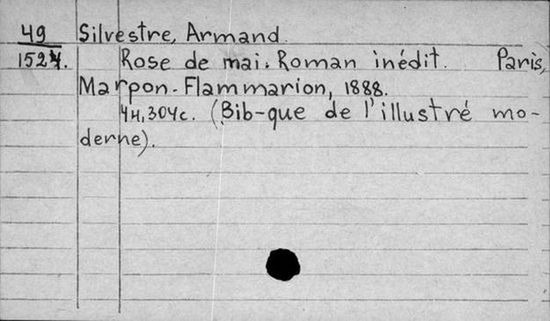 49 Silvestre, Armand.
Rose de mai. Roman inédit. Paris,
Marpon-Flammarion, 1888.
4н, 304с. (Bib-que de l'illustré mo-
derne).